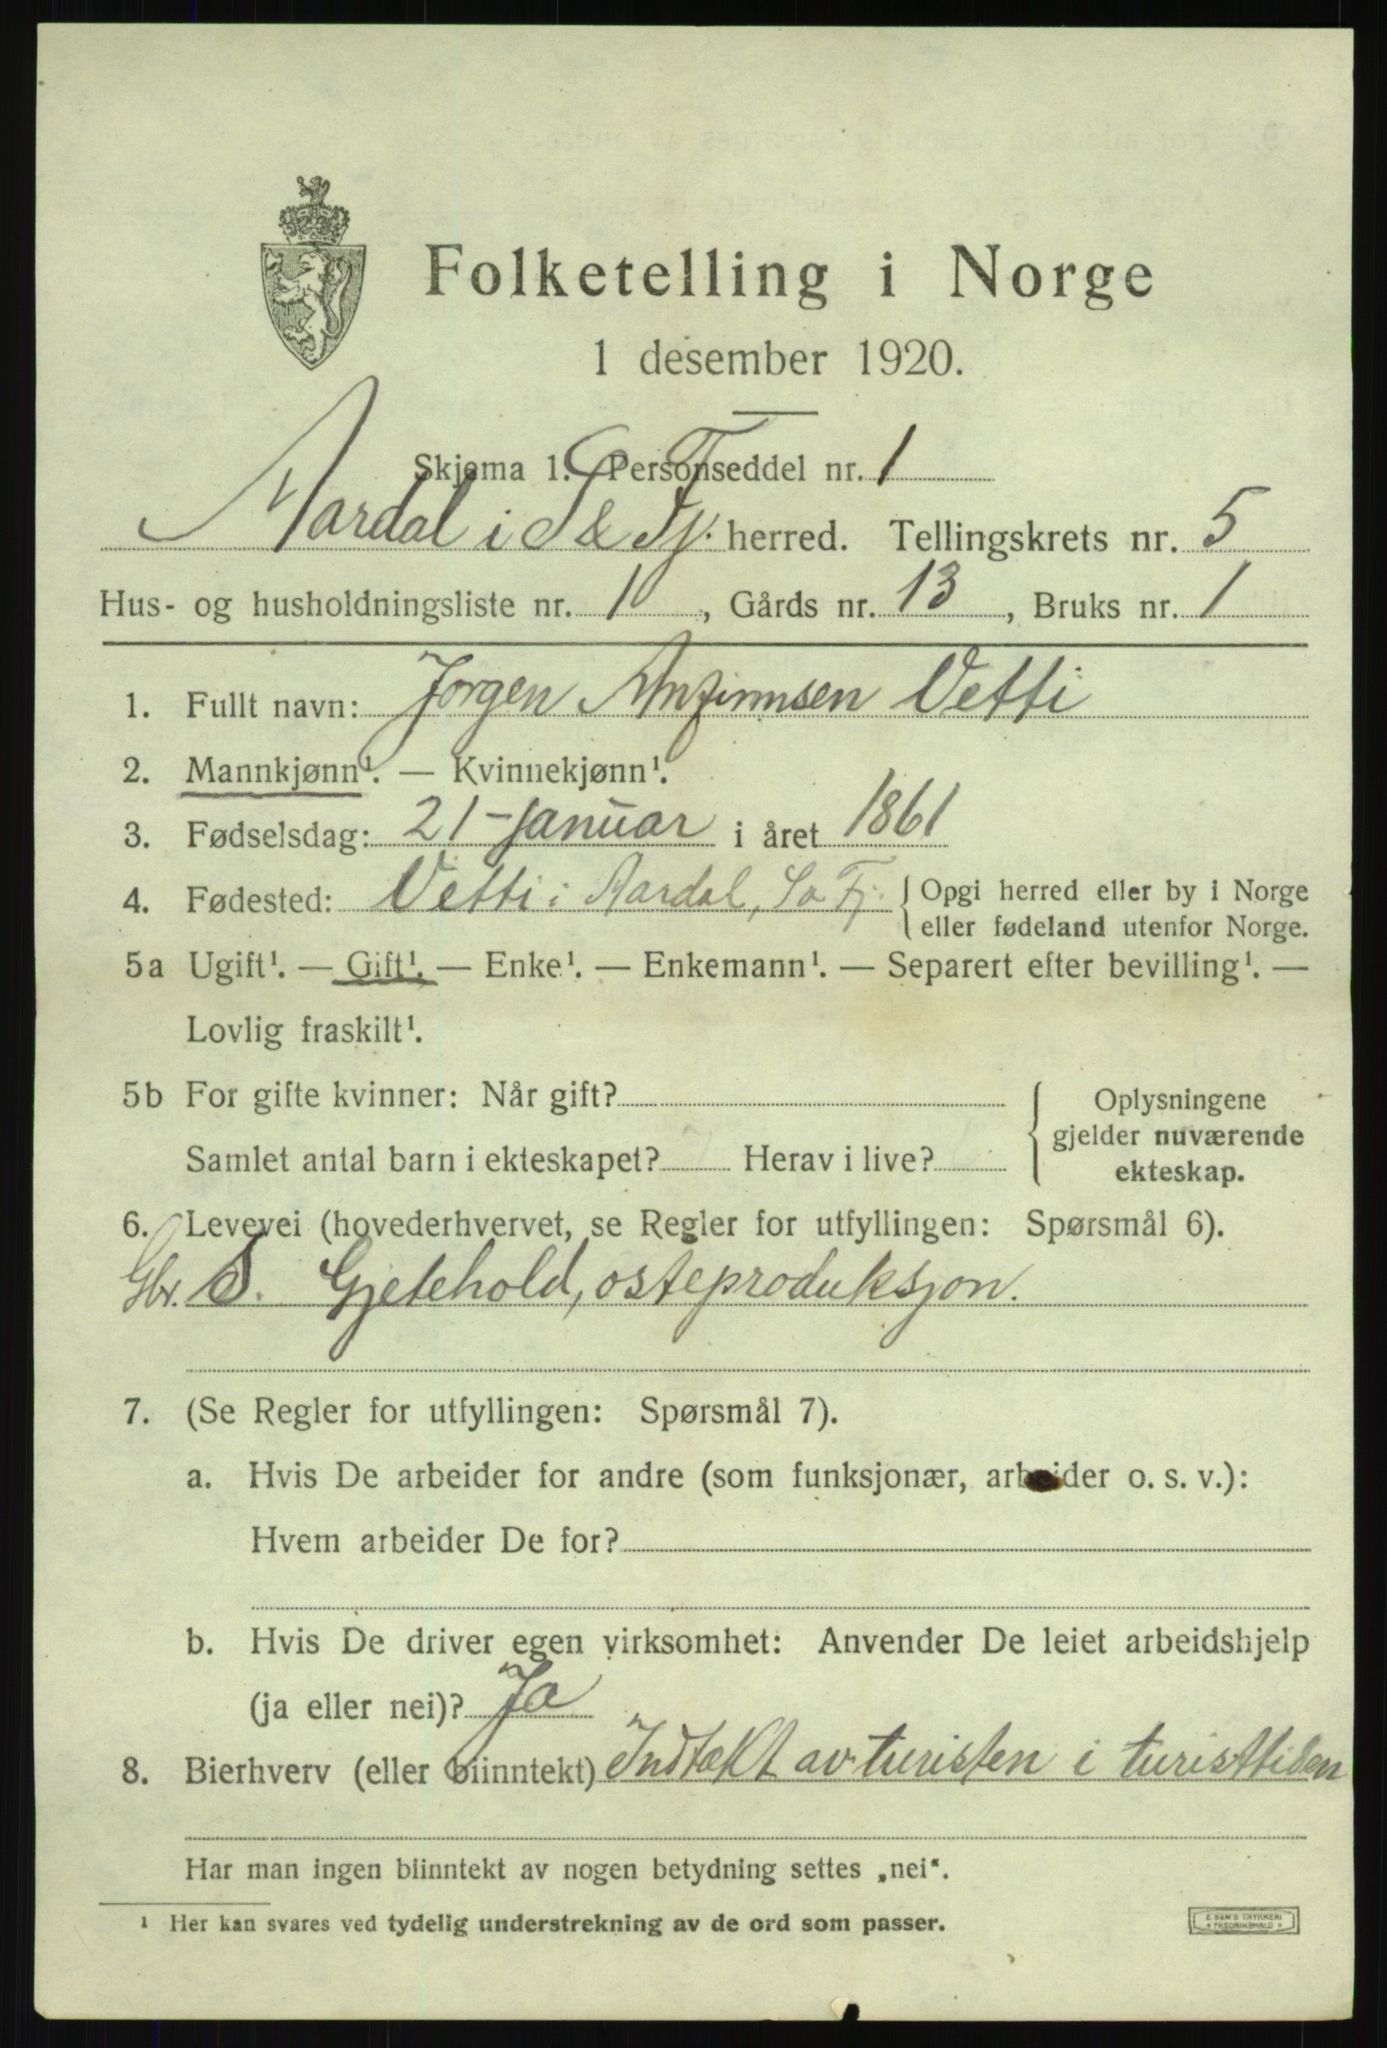 Folketelling i Norge
1 desember 1920.
Skjema 1. Personseddel nr. 1
Aardal i S & Fj. herred. Tellingskrets nr. 5
Hus- og husholdningsliste nr. 1, Gårds nr. 13, Bruks nr. 1
1. Fullt navn: Jørgen Anfinnsen Vetti
2. Mannkjønn¹. — Kvinnekjønn¹.
3. Fødselsdag: 21-januar i året 1861
4. Fødested: Vetti i Aardal, So Fj. { Opgi herred eller by i Norge
eller fødeland utenfor Norge.
5a Ugift¹. — Gift¹. — Enke¹. — Enkemann¹. — Separert efter bevilling¹. —
Lovlig fraskilt¹.
5b For gifte kvinner: Når gift?
Samlet antal barn i ekteskapet? Herav i live?
{ Oplysningene
gjelder nuværende
ekteskap.
6. Levevei (hovederhvervet, se Regler for utfyllingen: Spørsmål 6).
Gbr. S. Gjetehold, osteproduksjon.
7. (Se Regler for utfyllingen: Spørsmål 7).
a. Hvis De arbeider for andre (som funksjonær, arbeider o. s. v.):
Hvem arbeider De for?
b. Hvis De driver egen virksomhet: Anvender De leiet arbeidshjelp
(ja eller nei)? Ja
8. Bierhverv (eller biinntekt) Indtækt av turisten i turisttiden
Har man ingen biinntekt av nogen betydning settes „nei“.
¹ Her kan svares ved tydelig understrekning av de ord som passer.
E. SEM'S TRYKKERI
* FREDRIKSHALD *